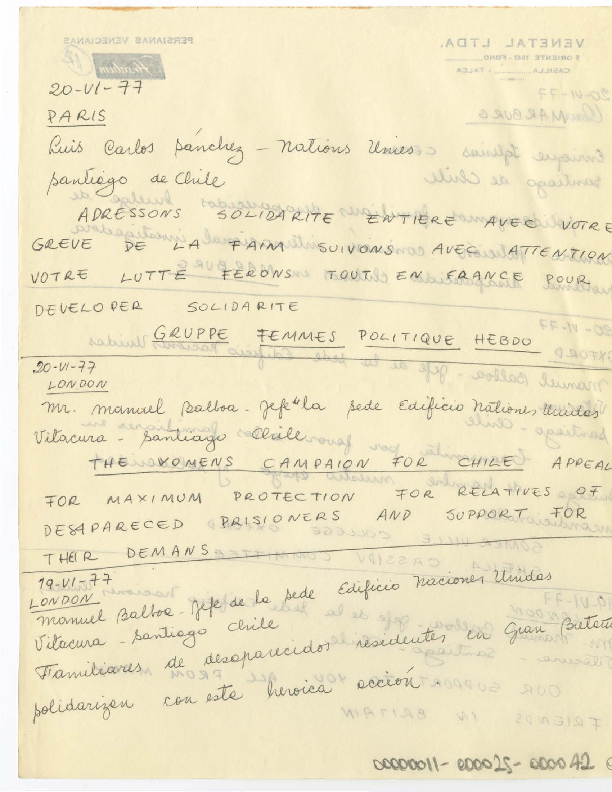 20-VI-77
PARIS
Luis Carlos Sánchez - Nations Unies
Santiago de Chile
ADRESSONS SOLIDARITE ENTIERE AVEC VOTRE
GREVE DE LA FAIM SUIVONS AVEC ATTENTION
VOTRE LUTTE FERONS TOUT EN FRANCE POUR
DEVELOPER SOLIDARITE
GRUPPE FEMMES POLITIQUE HEBDO
20-VI-77
LONDON
Mr. Manuel Balboa - Jefe la Sede Edificio Nationes Unidas
Vitacura - Santiago Chile
THE WOMENS CAMPAION FOR CHILE APPEAL
FOR MAXIMUM PROTECTION FOR RELATIVES OF
DESAPARECED PRISIONERS AND SUPPORT FOR
THEIR DEMANS
19-VI-77
LONDON
Manuel Balboa - Jefe de la Sede Edificio Naciones Unidas
Vitacura - Santiago Chile
Familiares de desaparecidos residentes en Gran Bretaña
solidarizan con esta heroica acción
00000011-000025-000042